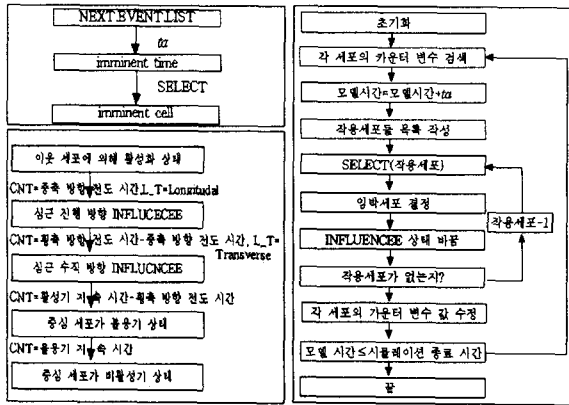 NEXT EVENT LIST
ta
imminent time
SELECT
imminent cell
이웃 세포에 의해 활성화 상태
CNT=종축 방향 전도 시간,L_T=Longitudal
심근 진행 방향 INFLUCECEE
CNT=횡축 방향 전도 시간-종축 방향 전도 시간, L_T=
Transverse
심근 수직 방향 INFLUCNCEE
CNT=활성기 지속 시간-횡축 방향 전도 시간
중심 세포가 불응기 상태
CNT=불응기 지속 시간
중심 세포가 비활성기 상태
초기화
각 세포의 카운터 변수 검색
모델시간=모델시간+ta
작용세포들 목록 작성
SELECT(작용세포)
임박세포 결정
INFLUENCEE 상태 바꿈
작용세포-1
작용세포가 없는지?
각 세포의 카운터 변수 값 수정
모델 시간≤시뮬레이션 종료 시간
끝